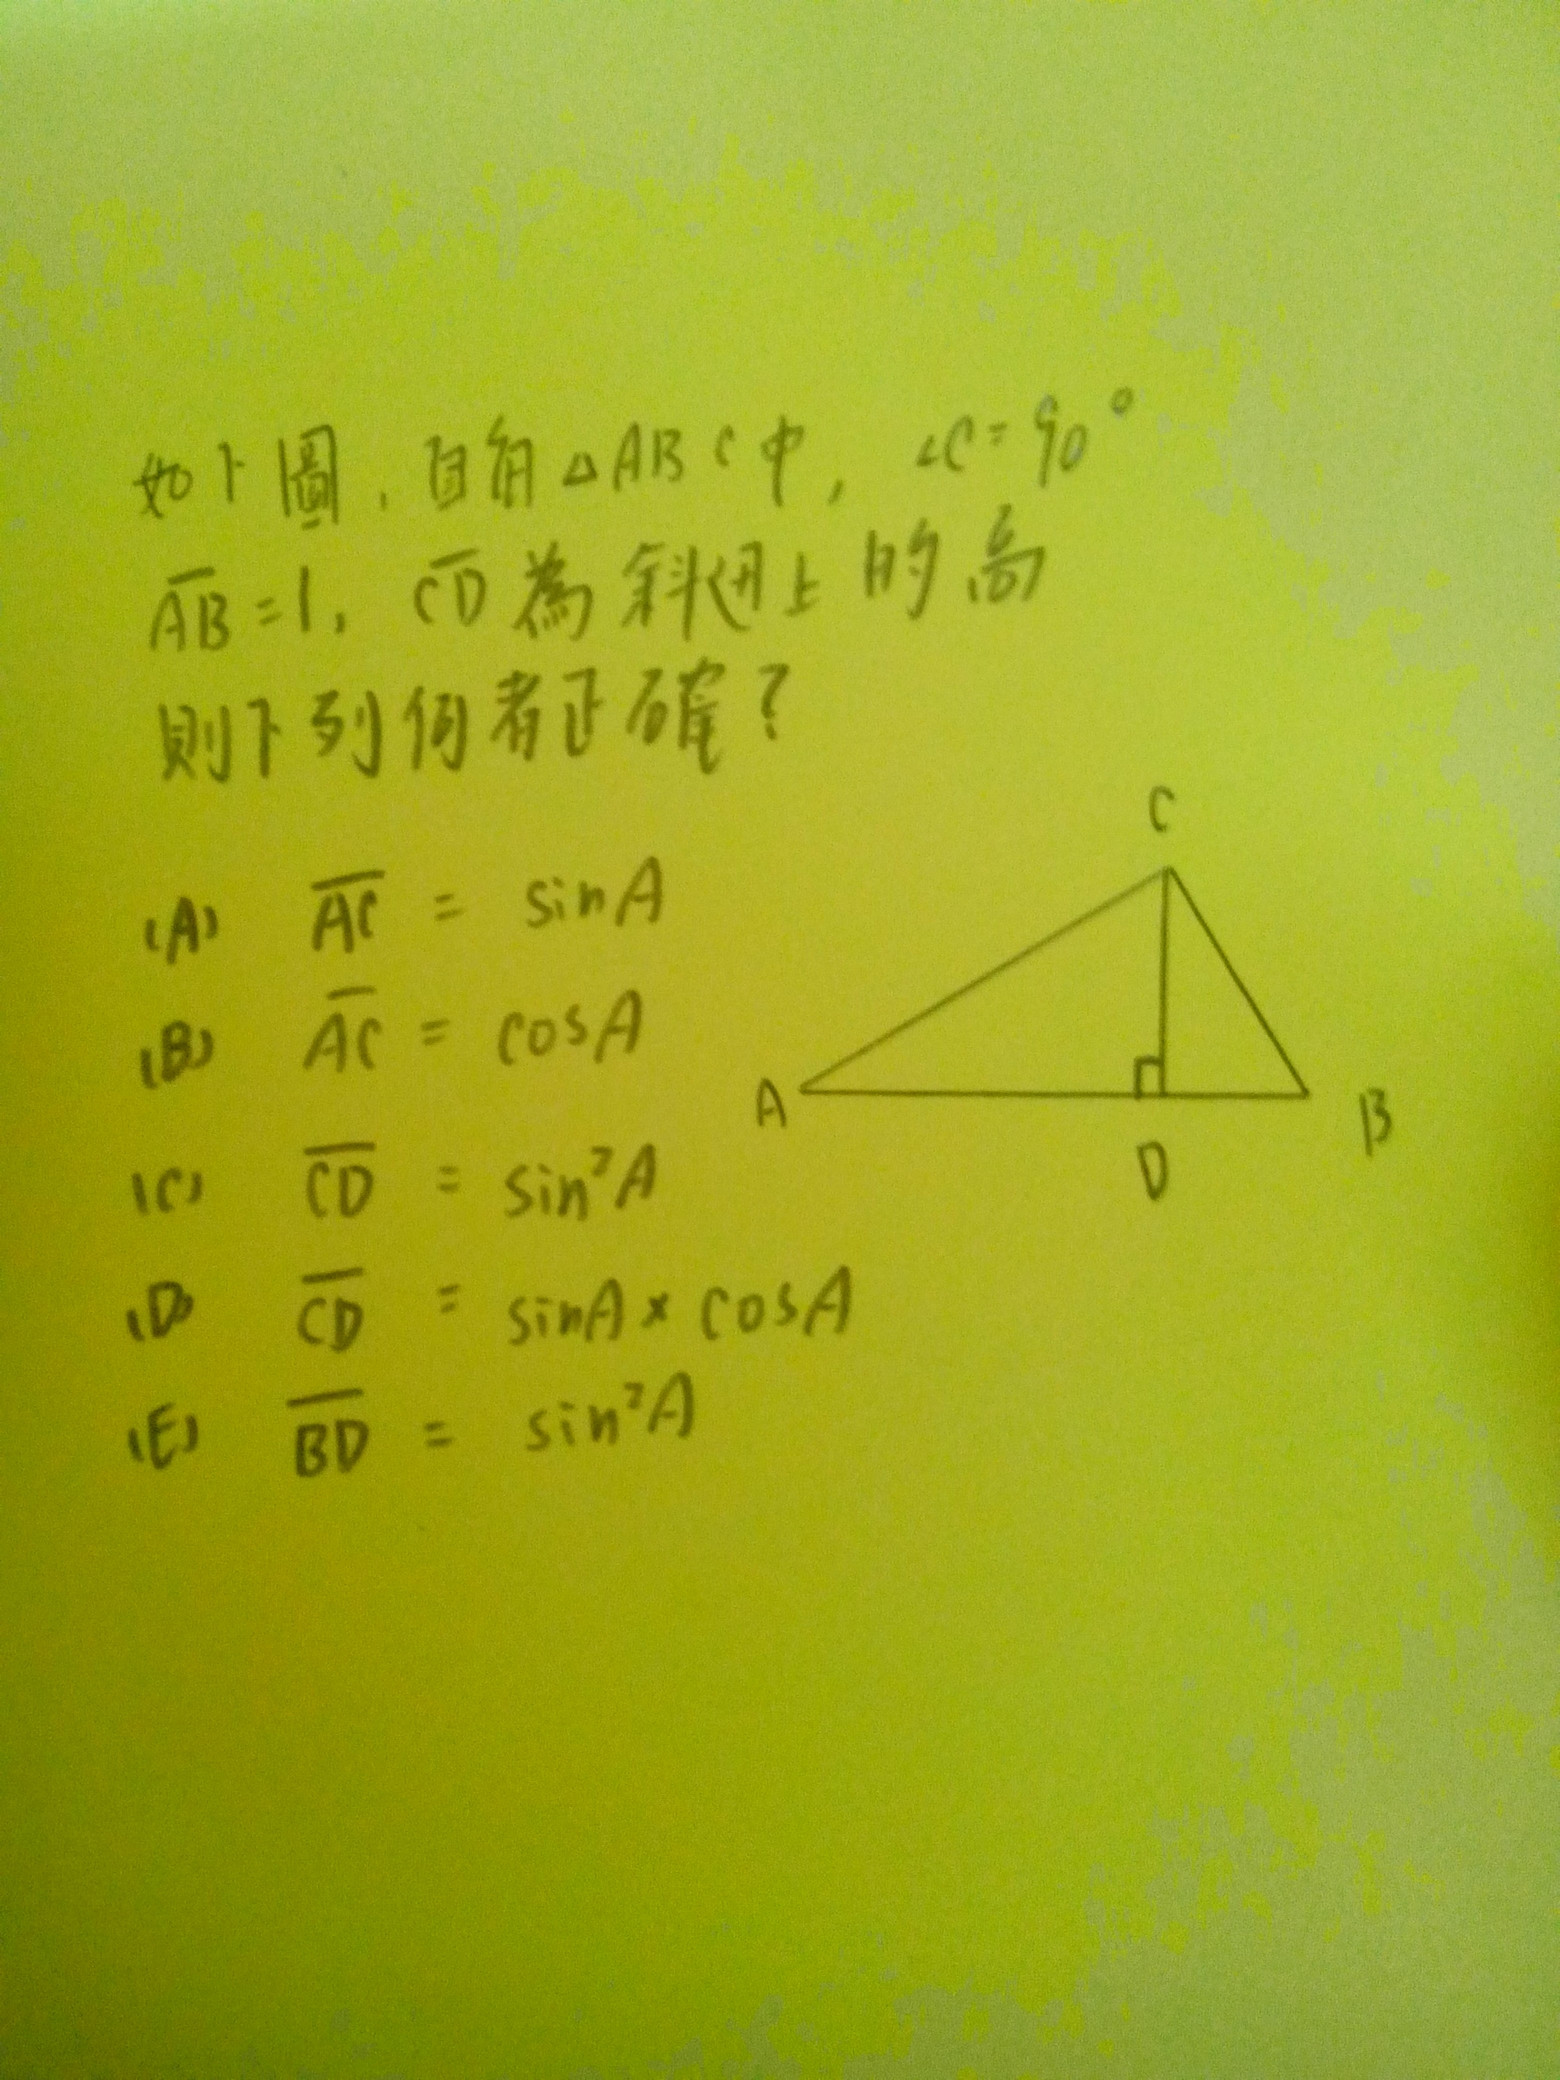 如下圖，直角△ABC中，∠C=90°
AB=1，CD為斜邊上的高
則下列何者正確？
C
(A) AC = sinA
(B) AC = cosA
A
B
(C) CD = sin²A
D
(D) CD = sinA × cosA
(E) BD = sin²A